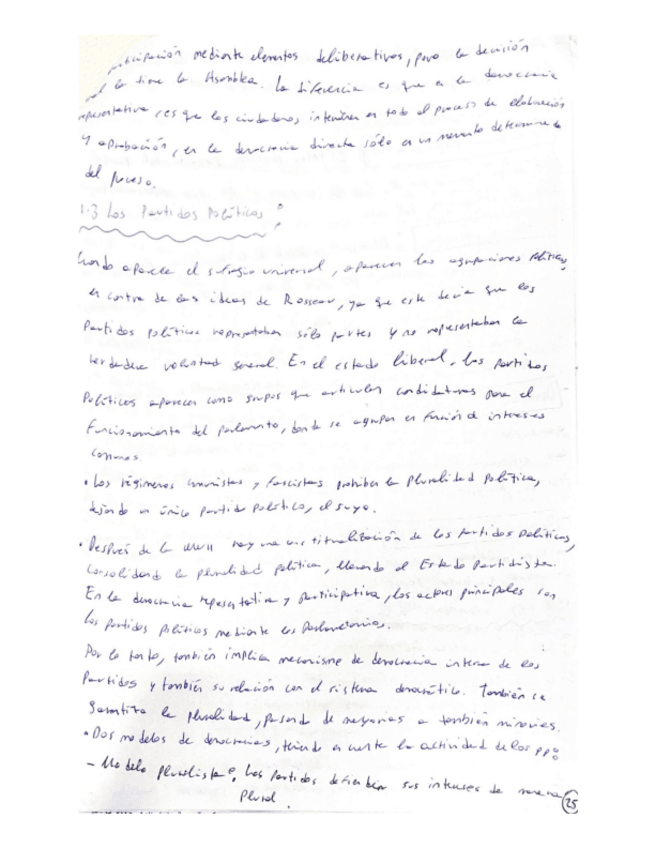 participación mediante elementos deliberativos, pero la decisión
la tiene la Asamblea. La diferencia es que en la democracia
representativa, es que los ciudadanos intervienen en todo el proceso de elaboración
y aprobación, en la democracia directa sólo en un momento determinado
del proceso.
1.3 Los Partidos Políticos:
Cuando aparece el sufragio universal, aparecen las agrupaciones políticas,
en contra de las ideas de Rosseau, ya que este decía que los
Partidos políticos representaban sólo partes y no representaban la
verdadera voluntad general. En el estado liberal, los partidos
Políticos aparecen como grupos que articulan candidaturas para el
funcionamiento del parlamento, donde se agrupan en función de intereses
comunes.
• Los régimenes comunistas y fascistas prohiben la pluralidad política,
dejando un único partido político, el suyo.
• Después de la WWII hay una constitualización de los partidos políticos,
consolidando la pluralidad política, llevando al Estado Partidista.
En la democracia representativa y participativa, los actores principales son
los partidos políticos mediante los Parlamentarios.
Por lo tanto, también implica mecanismo de democracia interna de los
Partidos y también su relación con el sistema democrático. También se
garantiza la pluralidad, pasando de mayorías a también minorías.
• Dos modelos de democracias, teniendo en cuenta la actividad de los PP:
- Modelo pluralista: Los partidos defienden sus intereses de manera
Plural.
25